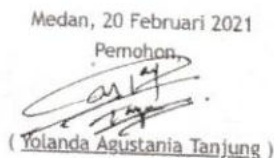 Medan, 20 Februari 2021
Pemohon,
( Yolanda Agustania Tanjung )